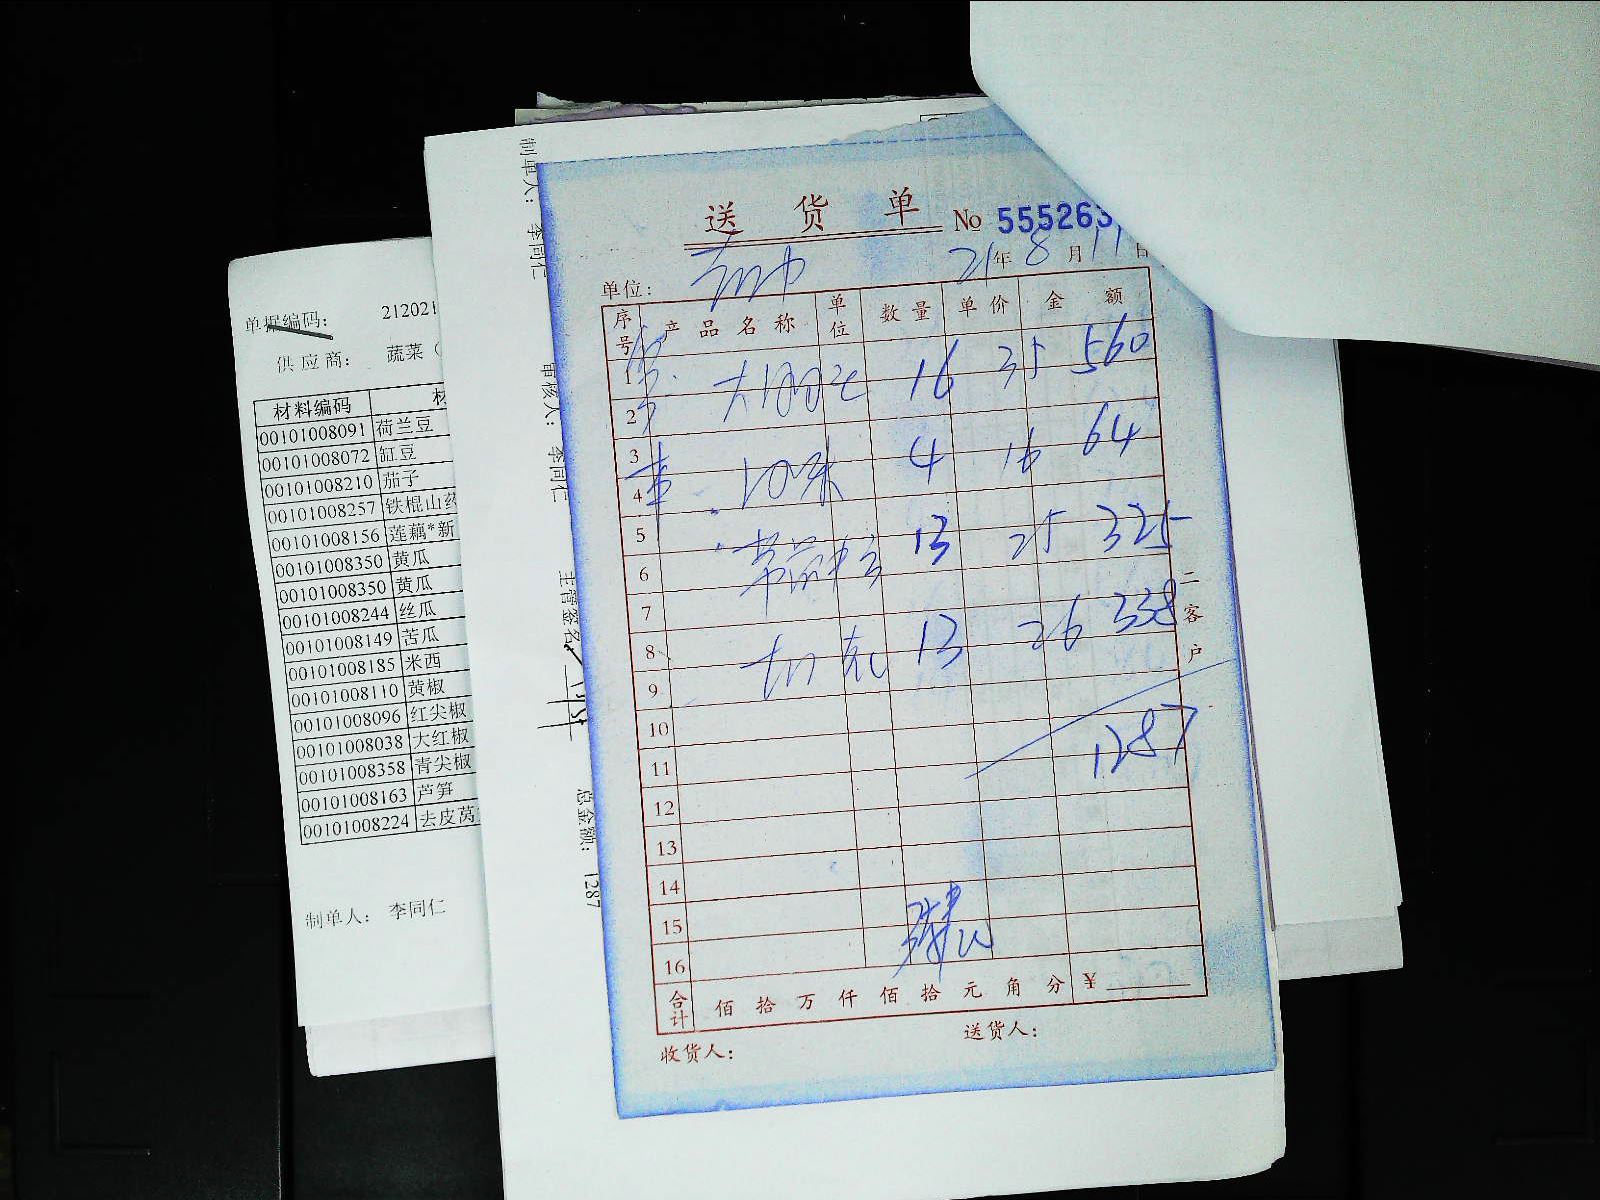 送货单 No 555263
21年8月11日
单位:
序号 产品名称 单位 数量 单价 金额
1
16 35 560
2
3
4 16 64
4
5
13 25 325
6
7
13 26 338
8
9
10
1287
11
12
13
14
15
16
合计 佰拾万仟佰拾元角分 ¥
收货人: 送货人:
二客户
制单人: 李同仁
审核人: 李同仁
主管签名
总金额: 1287
单据编码: 212021
供应商: 蔬菜(
材料编码 材
00101008091 荷兰豆
00101008072 缸豆
00101008210 茄子
00101008257 铁棍山药
00101008156 莲藕*新
00101008350 黄瓜
00101008350 黄瓜
00101008244 丝瓜
00101008149 苦瓜
00101008185 米西
00101008110 黄椒
00101008096 红尖椒
00101008038 大红椒
00101008358 青尖椒
00101008163 芦笋
00101008224 去皮莴
制单人: 李同仁